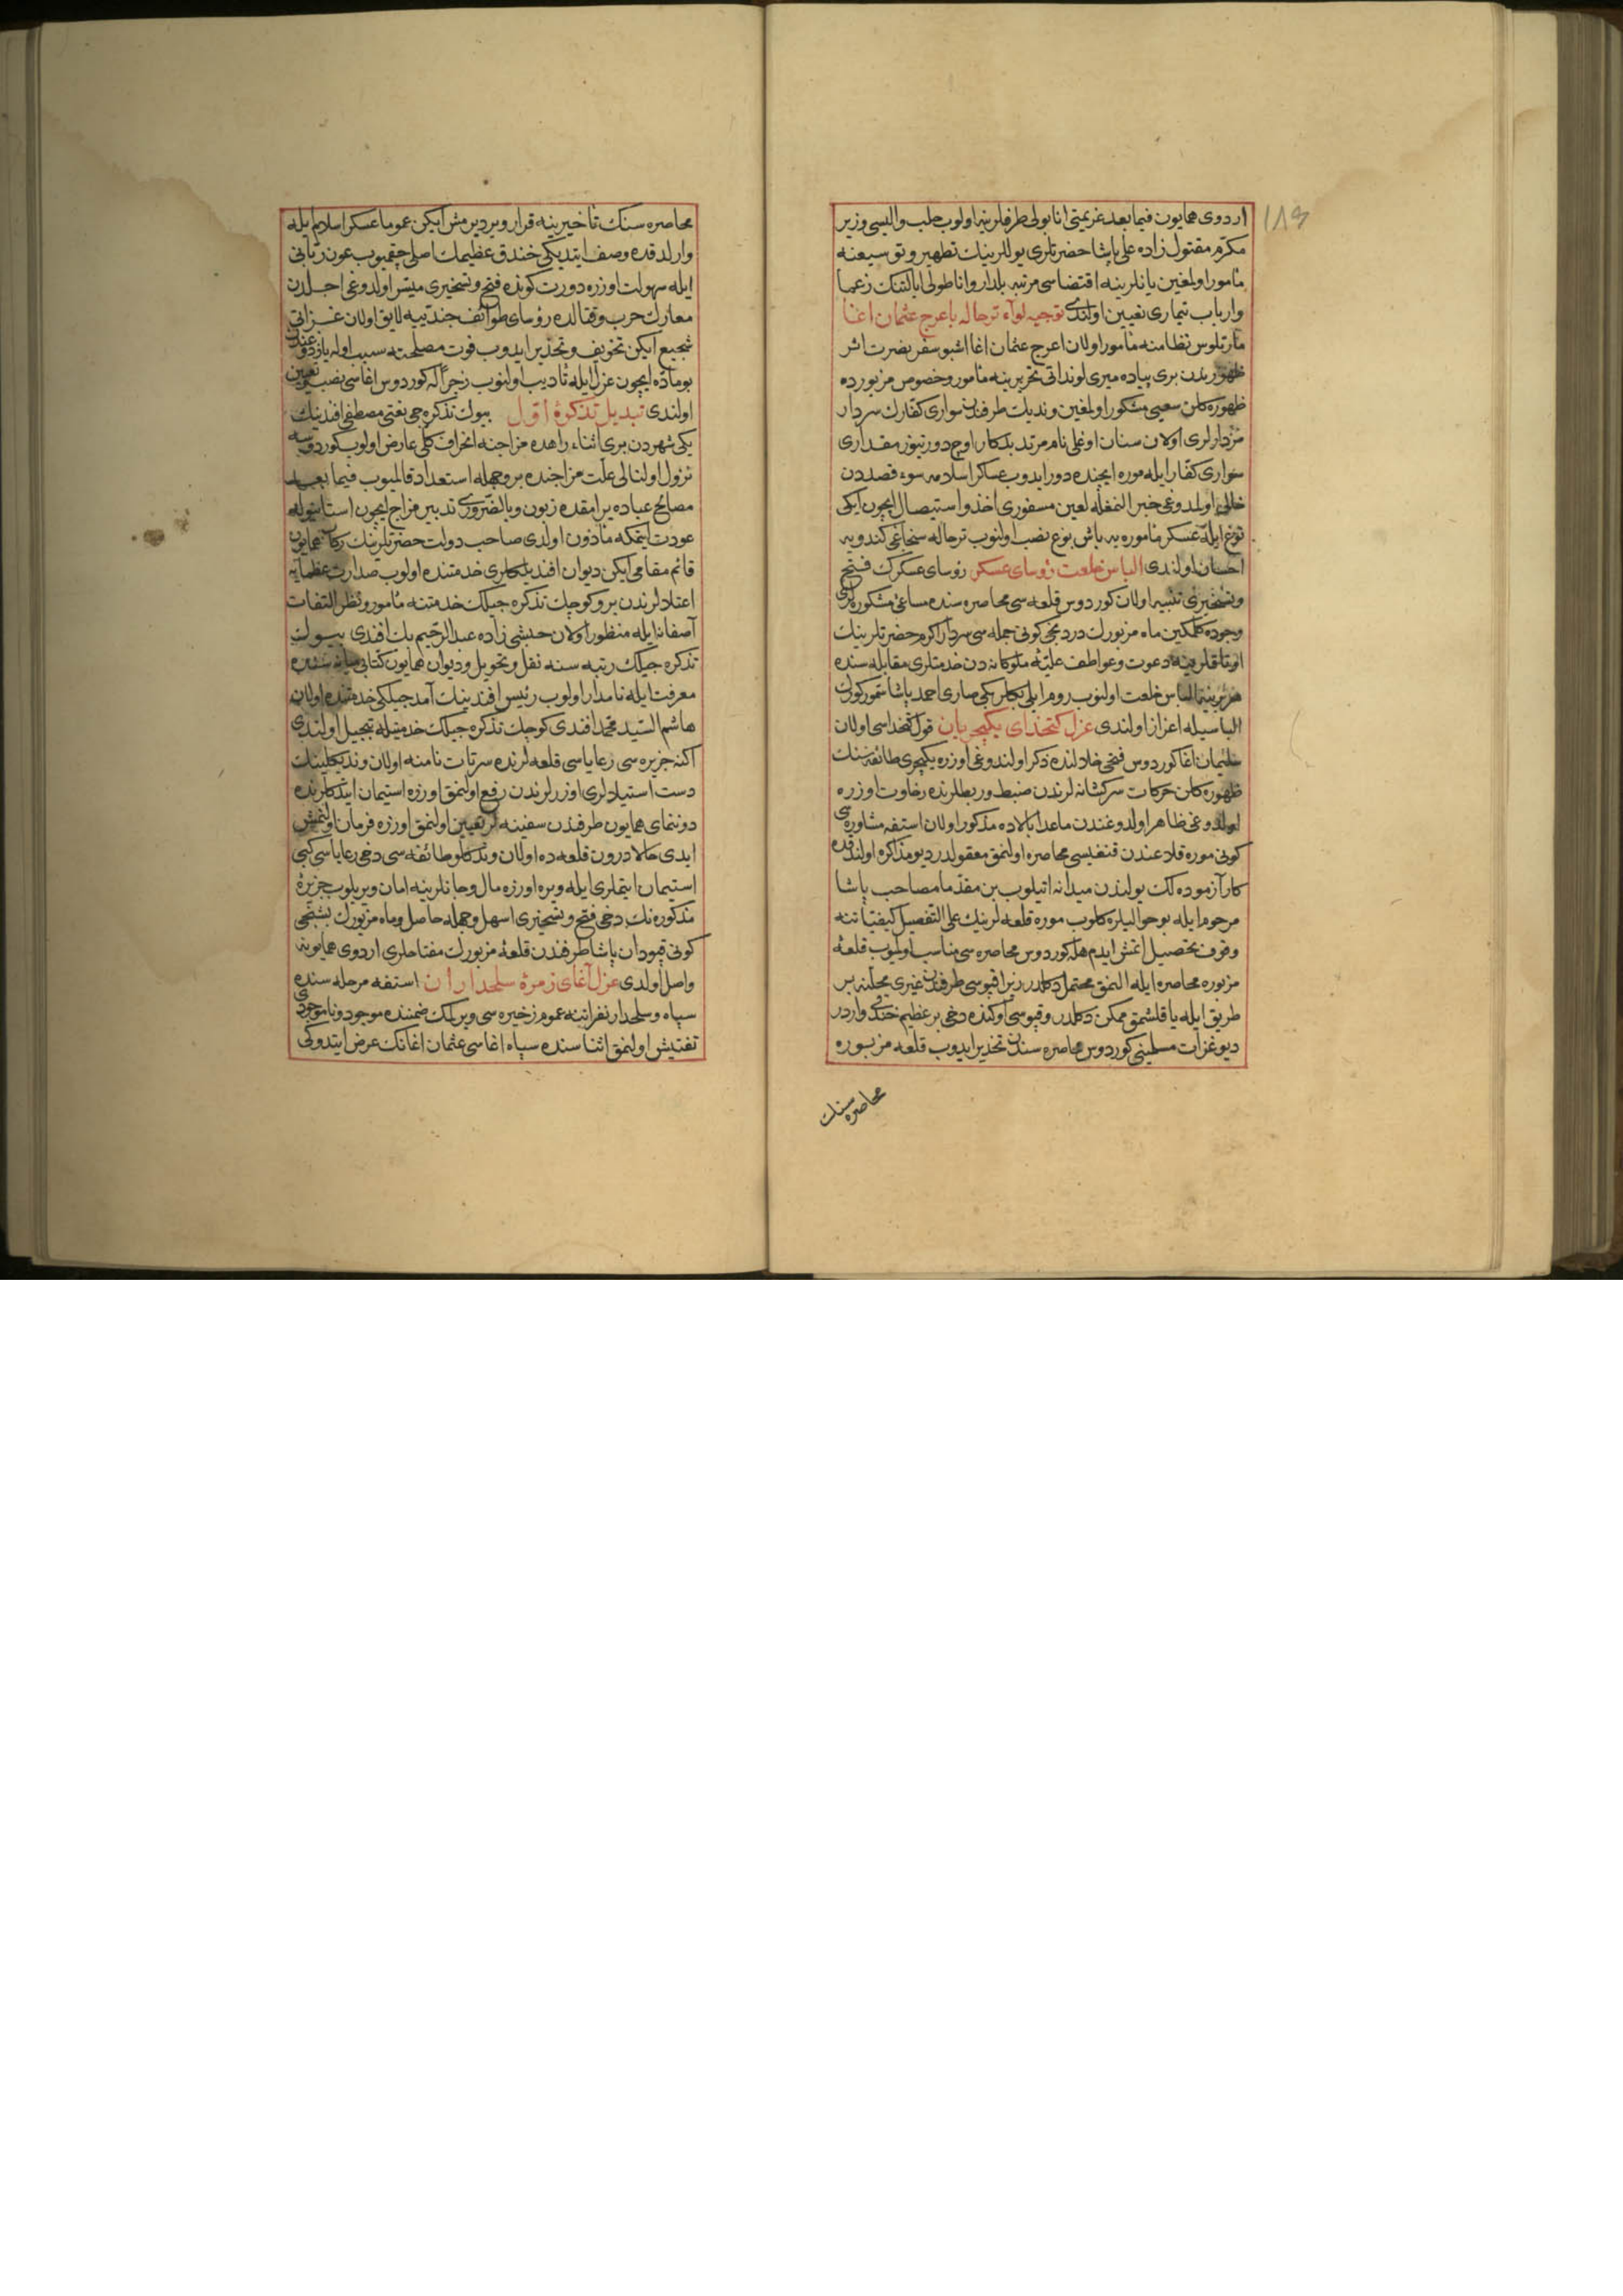 اردوی همایون فیما بعد عزیمتی انابولی طرفلرینه اولوب حلب والیسی وزیر
مكرم مقتول زاده علی پاشا حضرتلری یوللرینك تطهیر و توسیعنه
مأمور اولمغین یانلرینه اقتضاسی مرتبه بلدار و اناطولی ایالتنك زعما
وارباب تیماری تعیین اولندی توجیه لواء ترحاله باعرج عثمان اغا
مارتلوس نظامنه مأمور اولان اعرج عثمان اغا اشبو سفر نصرت اثر
ظهورندن بری پیاده میری لونداتی تحریرینه مأمور و خصوص مزبورده
ظهوره كلان سعیی مشكور اولمغین وندیك طرفندن سواری كفارك سردار
مزدارلری اولان سنان اوغلی نام مرتد بدكار اوچ دورتیوز مقداری
سواری كفار ایله موره ایچنده دور ایدوب عساكر اسلامه سوء قصددن
خالی اولمدوغی خبر النمغله لعین مسفوری اخذ و استیصال ایچون ایكی
توغ ایله عسكر مأموره یه باش بوغ نصب اولنوب ترحاله سنجاغی كندویه
احسان اولندی الباس خلعت رؤسای عسكر رؤسای عسكرك فتح
وتسخیری اولان كوردوس قلعه سی محاصره سنده مساعی مشكوره لری
وجوده كلمكین ماه مزبورك دردنجی كونی جمله سی سردار اكرم حضرتلرینك
اوتاقلرینه دعوت و عواطف علیه ملوكانه دن خدمتلری مقابله سنده
هر برینه الباس خلعت اولنوب روم ایلی بكلربكی صاری احمد پاشا سمور كورك
الباسیله اعزاز اولندی عزل كتخدای یكیچریان قول كتخداسی اولان
سلیمان اغا كوردوس فتحی خلالنده ذكر اولندوغی اوزره یكیچری طائفه سنك
ظهوره كلان حركات سركشانه لرندن ضبط و ربطلرنده رخاوت اوزره
اولدوغی ظاهر اولدوغندن ماعدا بالاده مذكور اولان استفه مشاوره سی
كونی موره قلاعندن قنغیسی محاصره اولنمق معقولدر دیو مذاكره اولندقده
كار آزموده لك یولندن میدانه اتیلوب بن مقدما مصاحب پاشا
مرحوم ایله بو حوالیلره كلوب موره قلعه لرینك علی التفصیل كیفیاتنه
وقوف تحصیل اتمش ایدم هله كوردوس محاصره سی مناسب اولیوب قلعۀ
مزبوره محاصره ایله النمق محتمل دكلدر زیرا قپوسی طرفندن غیری محلنه بر
طریق ایله یاقلشمق ممكن دكلدر و قپوسی اوكنده دخی بر عظیم خندقی واردر
دیو غزات مسلمینی كوردوس محاصره سندن تحذیر ایدوب قلعه مزبوره
محاصره سنك
محاصره سنك تأخیرینه قرار ویردیرمش ایكن عموما عسكر اسلام ایله
وارلدقده وصف ایتدیكی خندق عظیمك اصلی چقمیوب عون ربانی
ایله سهولت اوزره دورت كونده فتح و تسخیری میسر اولدوغی اجلدن
معارك حرب و قتالده رؤسای طوائف جندییه لایق اولان غزاتی
تشجیع ایكن تخویف و تحذیر ایدوب فوت مصلحته سبب اوله یازدوغندن
بو ماده ایچون عزل ایله تأدیب اولنوب زجرا له كوردوس اغاسی نصب و تعیین
اولندی تبدیل تذكرۀ اول بیوك تذكره جی نعتی مصطفی افندینك
یكی شهردن بری اثناء راهده مزاجنه انحراف كلی عارض اولوب كوردوسه
نزول اولنالی علت مزاجنده بر وجهله استعداد قالمیوب فیما بعد
مصالح عباده یرامقده زبون و بالضروری تدبیر مزاج ایچون استانبوله
عودت ایتمكه مأذون اولدی صاحب دولت حضرتلرینك ركاب همایون
قائم مقامی ایكن دیوان افندیلكلری خدمتنده اولوب صدارت عظمایه
اعتلالرندن برو كوچك تذكره جیلك خدمتنه مأمور و نظر التفات
آصفانه ایله منظور اولان حبشی زاده عبد الرحیم بك افندی بیوك
تذكره جیلك رتبه سنه نقل و تحویل و دیوان همایون كتابی میانه سنده
معرفت ایله نامدار اولوب رئیس افندینك آمدجیلكی خدمتنده اولان
هاشم السید محمد افندی كوچك تذكره جیلك خدمتیله تبجیل اولندی
اكنه جزیره سی رعایاسی قلعه لرنده سرتات نامنه اولان وندیكلینك
دست استیلالری اوزرلرندن رفع اولنمق اوزره استیمان ایتدكلرنده
دوننمای همایون طرفندن سفینه لر تعیین اولنمق اوزره فرمان اولنمش
ایدی حالا درون قلعه ده اولان وندیكلو طائفه سی دخی رعایاسی كبی
استیمان ایتملری ایله ویره اوزره مال و جانلرینه امان ویریلوب جزیرۀ
مذكوره نك دخی فتح و تسخیری اسهل وجهله حاصل و ماه مزبورك بشنجی
كونی قپودان پاشا طرفندن قلعۀ مزبورك مفتاحلری اردوی همایونه
واصل اولدی عزل آغای زمرۀ سلحداران استفه مرحله سنده
سپاه و سلحدار نفراتنه عموم زخیره سی ویرلمك ضمننده موجود و ناموجودی
تفتیش اولنمق اثناسنده سپاه اغاسی عثمان اغانك عرض ایتدوكی